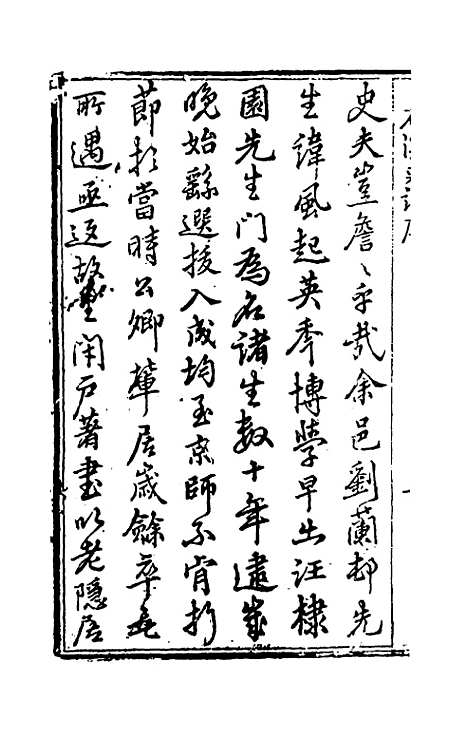 史夫豈詹〻乎哉余邑劉蘭邨先
生諱風起英年博學早出汪棣
園先生門為名諸生數十年逮歲
晚始繇選拔入成均至京師不肯折
節於當時公卿輦居歲餘卒無
所遇亟返故里閉戶著書以老隱居